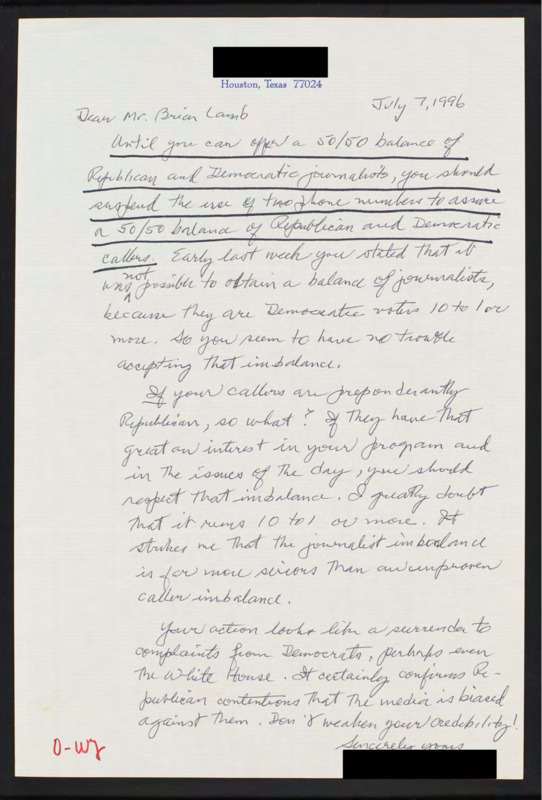 Houston, Texas 77024
July 7, 1996
Dear Mr. Brian Lamb
Until you can offer a 50/50 balance of
Republican and Democratic journalists, you should
suspend the use of two phone numbers to assure
a 50/50 balance of Republican and Democratic
callers. Early last week you stated that it
was not possible to obtain a balance of journalists,
because they are Democratic voters 10 to 1 or
more. So you seem to have no trouble
accepting that imbalance.
If your callers are preponderantly
Republican, so what? If they have that
great an interest in your program and
in the issues of the day, you should
respect that imbalance. I greatly doubt
that it runs 10 to 1 or more. It
strikes me that the journalist imbalance
is far more serious than an unproven
caller imbalance.
Your action looks like a surrender to
complaints from Democrats, perhaps even
the White House. It certainly confirms Re-
publican contentions that the media is biased
against them. Don't weaken your credibility!
Sincerely yours